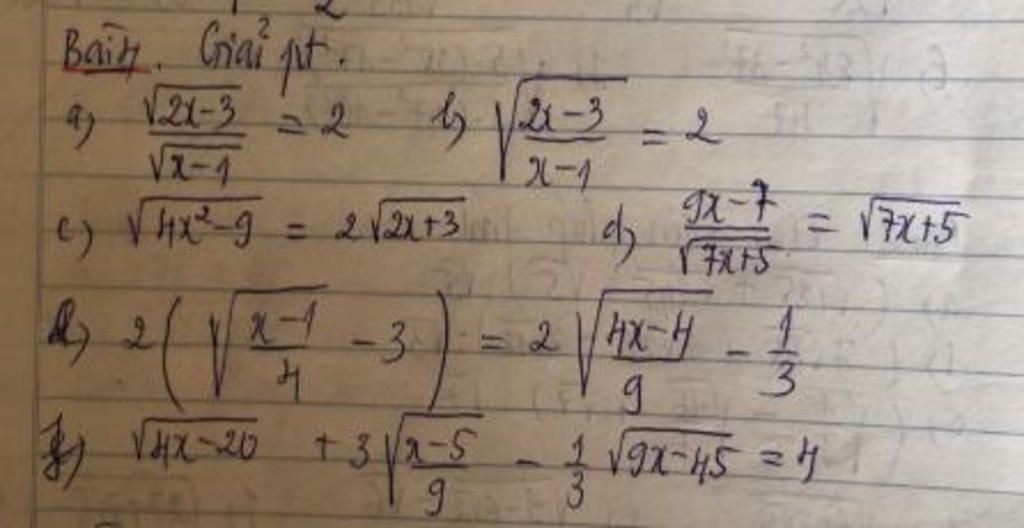 Bài 4. Giải pt.
a) \frac{\sqrt{2x-3}}{\sqrt{x-1}} = 2 b) \sqrt{\frac{2x-3}{x-1}} = 2
c) \sqrt{4x^2-9} = 2\sqrt{2x+3} d) \frac{9x-7}{\sqrt{7x+5}} = \sqrt{7x+5}
đ) 2\left(\sqrt{\frac{x-1}{4}} - 3\right) = 2\sqrt{\frac{4x-4}{9}} - \frac{1}{3}
f) \sqrt{4x-20} + 3\sqrt{\frac{x-5}{9}} - \frac{1}{3}\sqrt{9x-45} = 4